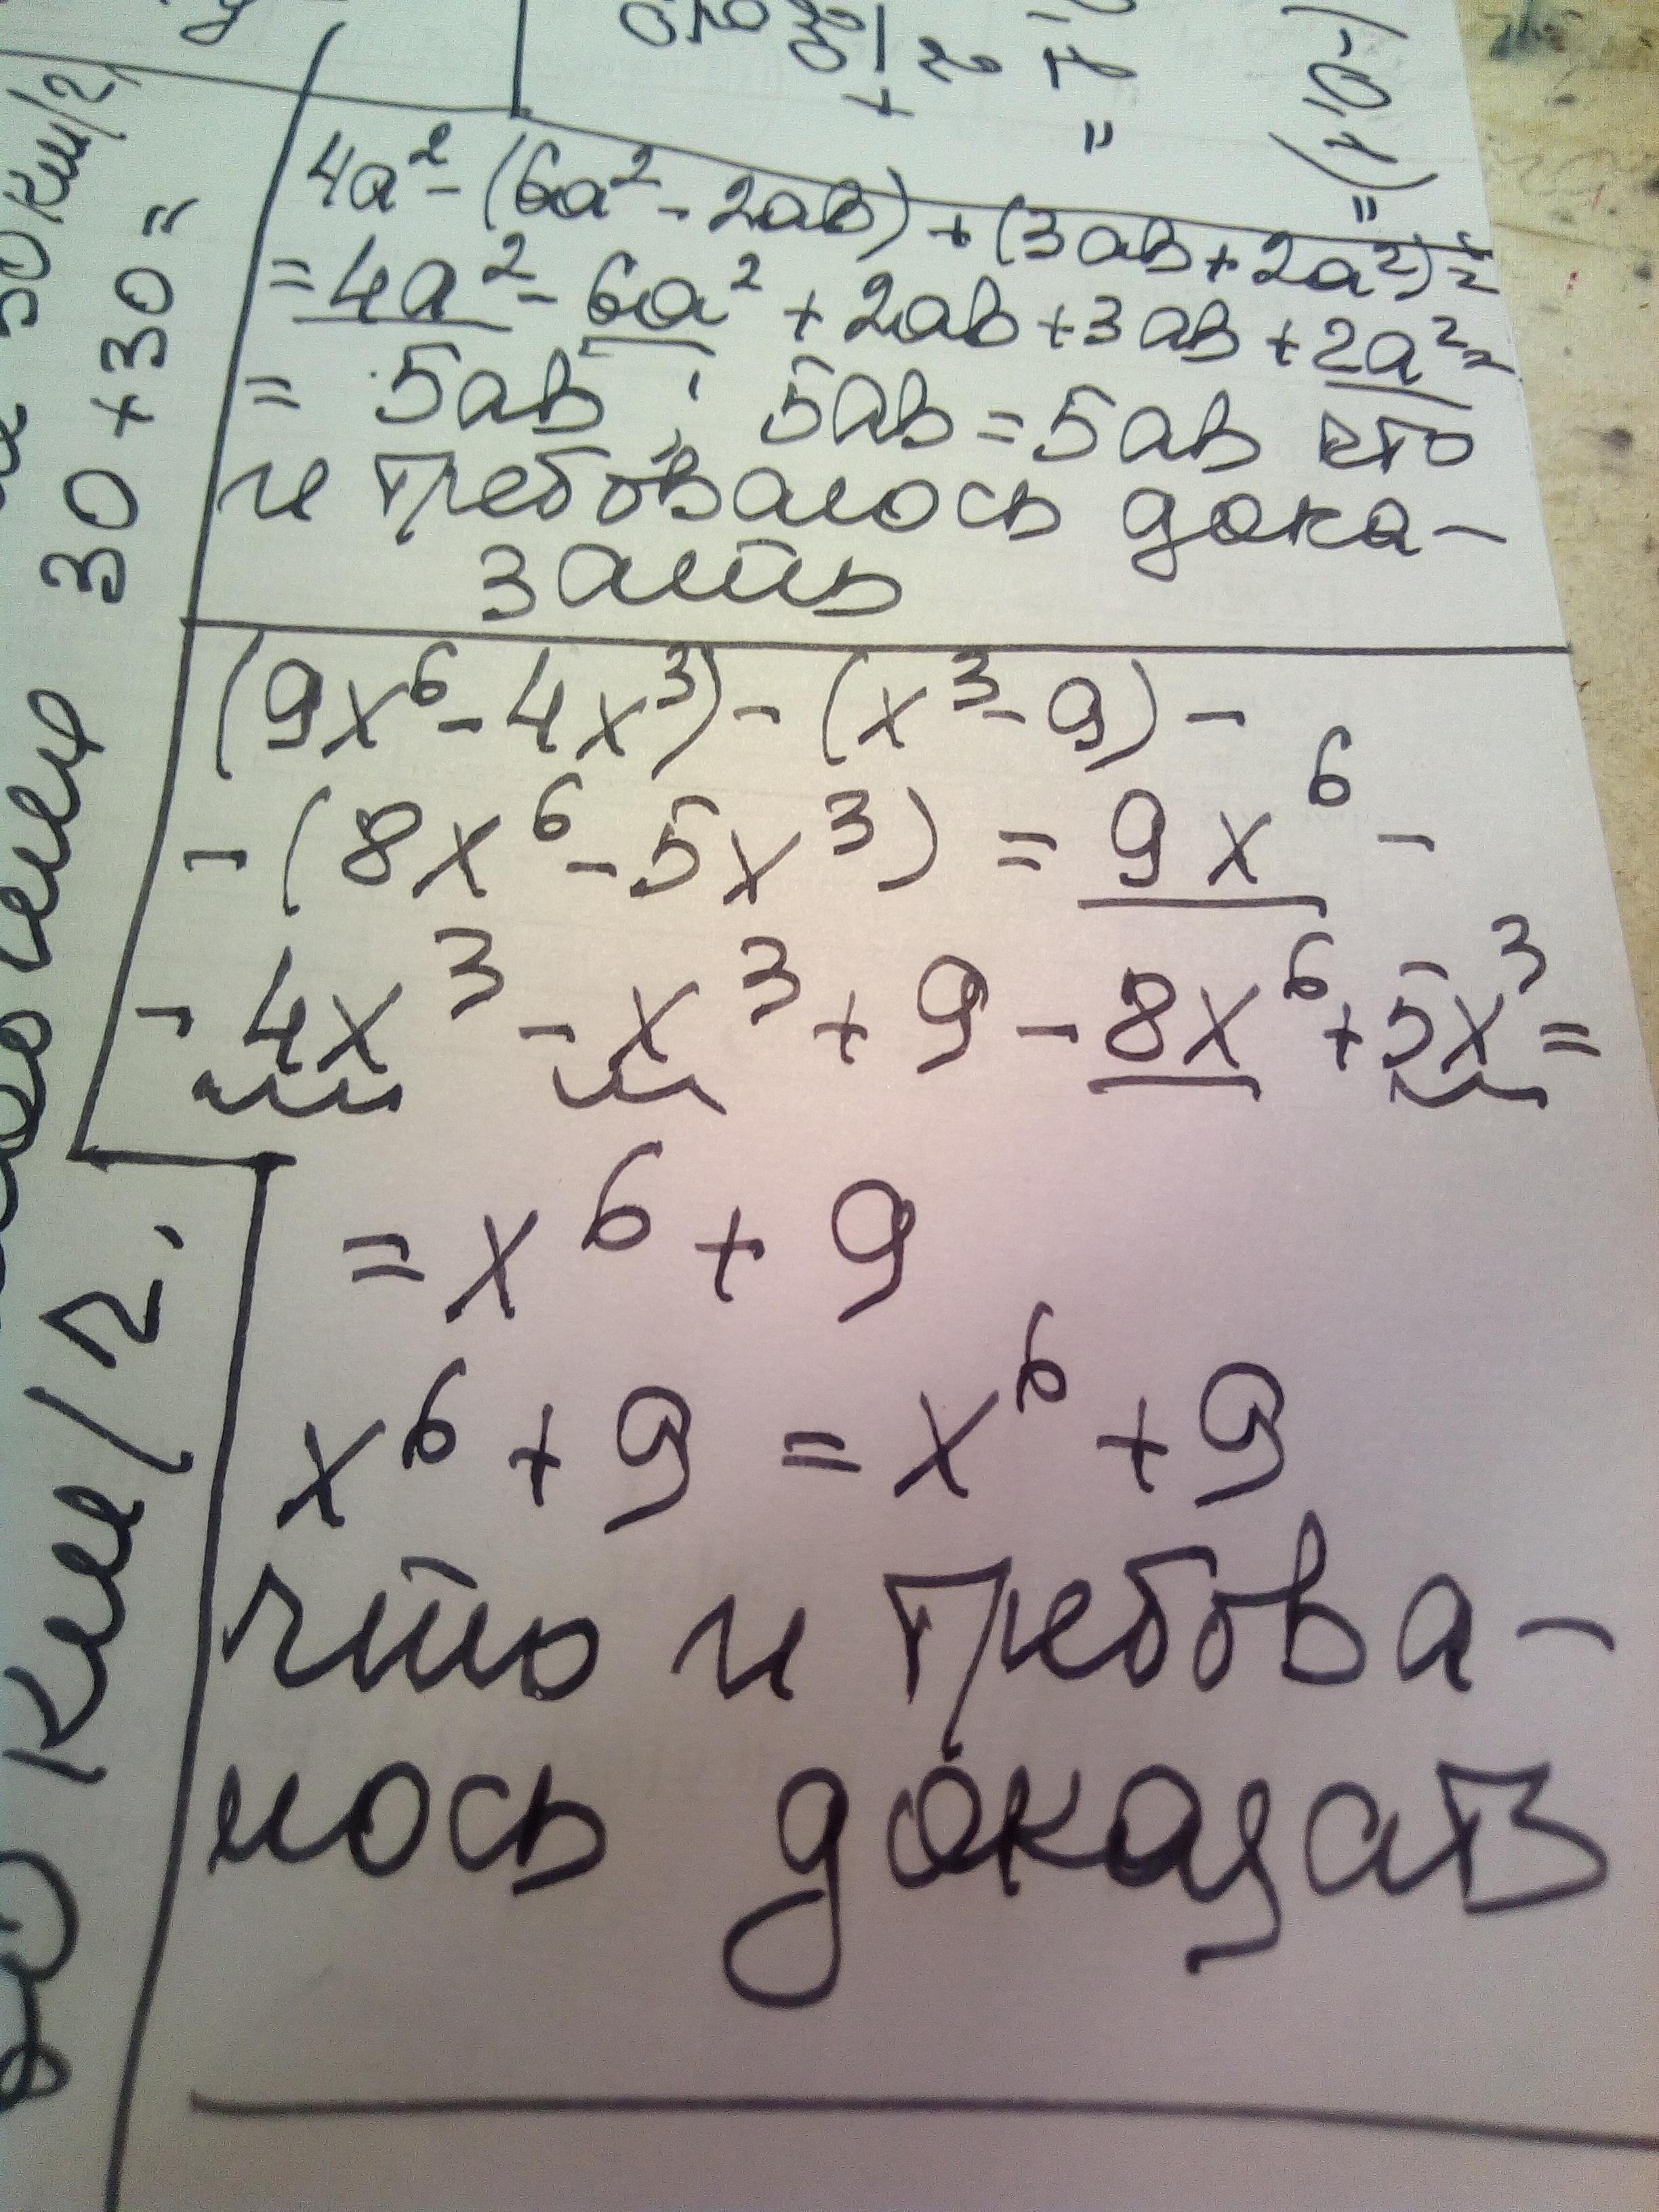 4a² - (6a² - 2ab) + (3ab + 2a²) =
= 4a² - 6a² + 2ab + 3ab + 2a² =
= 5ab ; 5ab = 5ab что
и требовалось дока-
зать
(9x⁶ - 4x³) - (x³ - 9) -
- (8x⁶ - 5x³) = 9x⁶ -
- 4x³ - x³ + 9 - 8x⁶ + 5x³ =
= x⁶ + 9
x⁶ + 9 = x⁶ + 9
что и требова-
лось доказать
30 км/ч
30 + 30 =
км/ч.